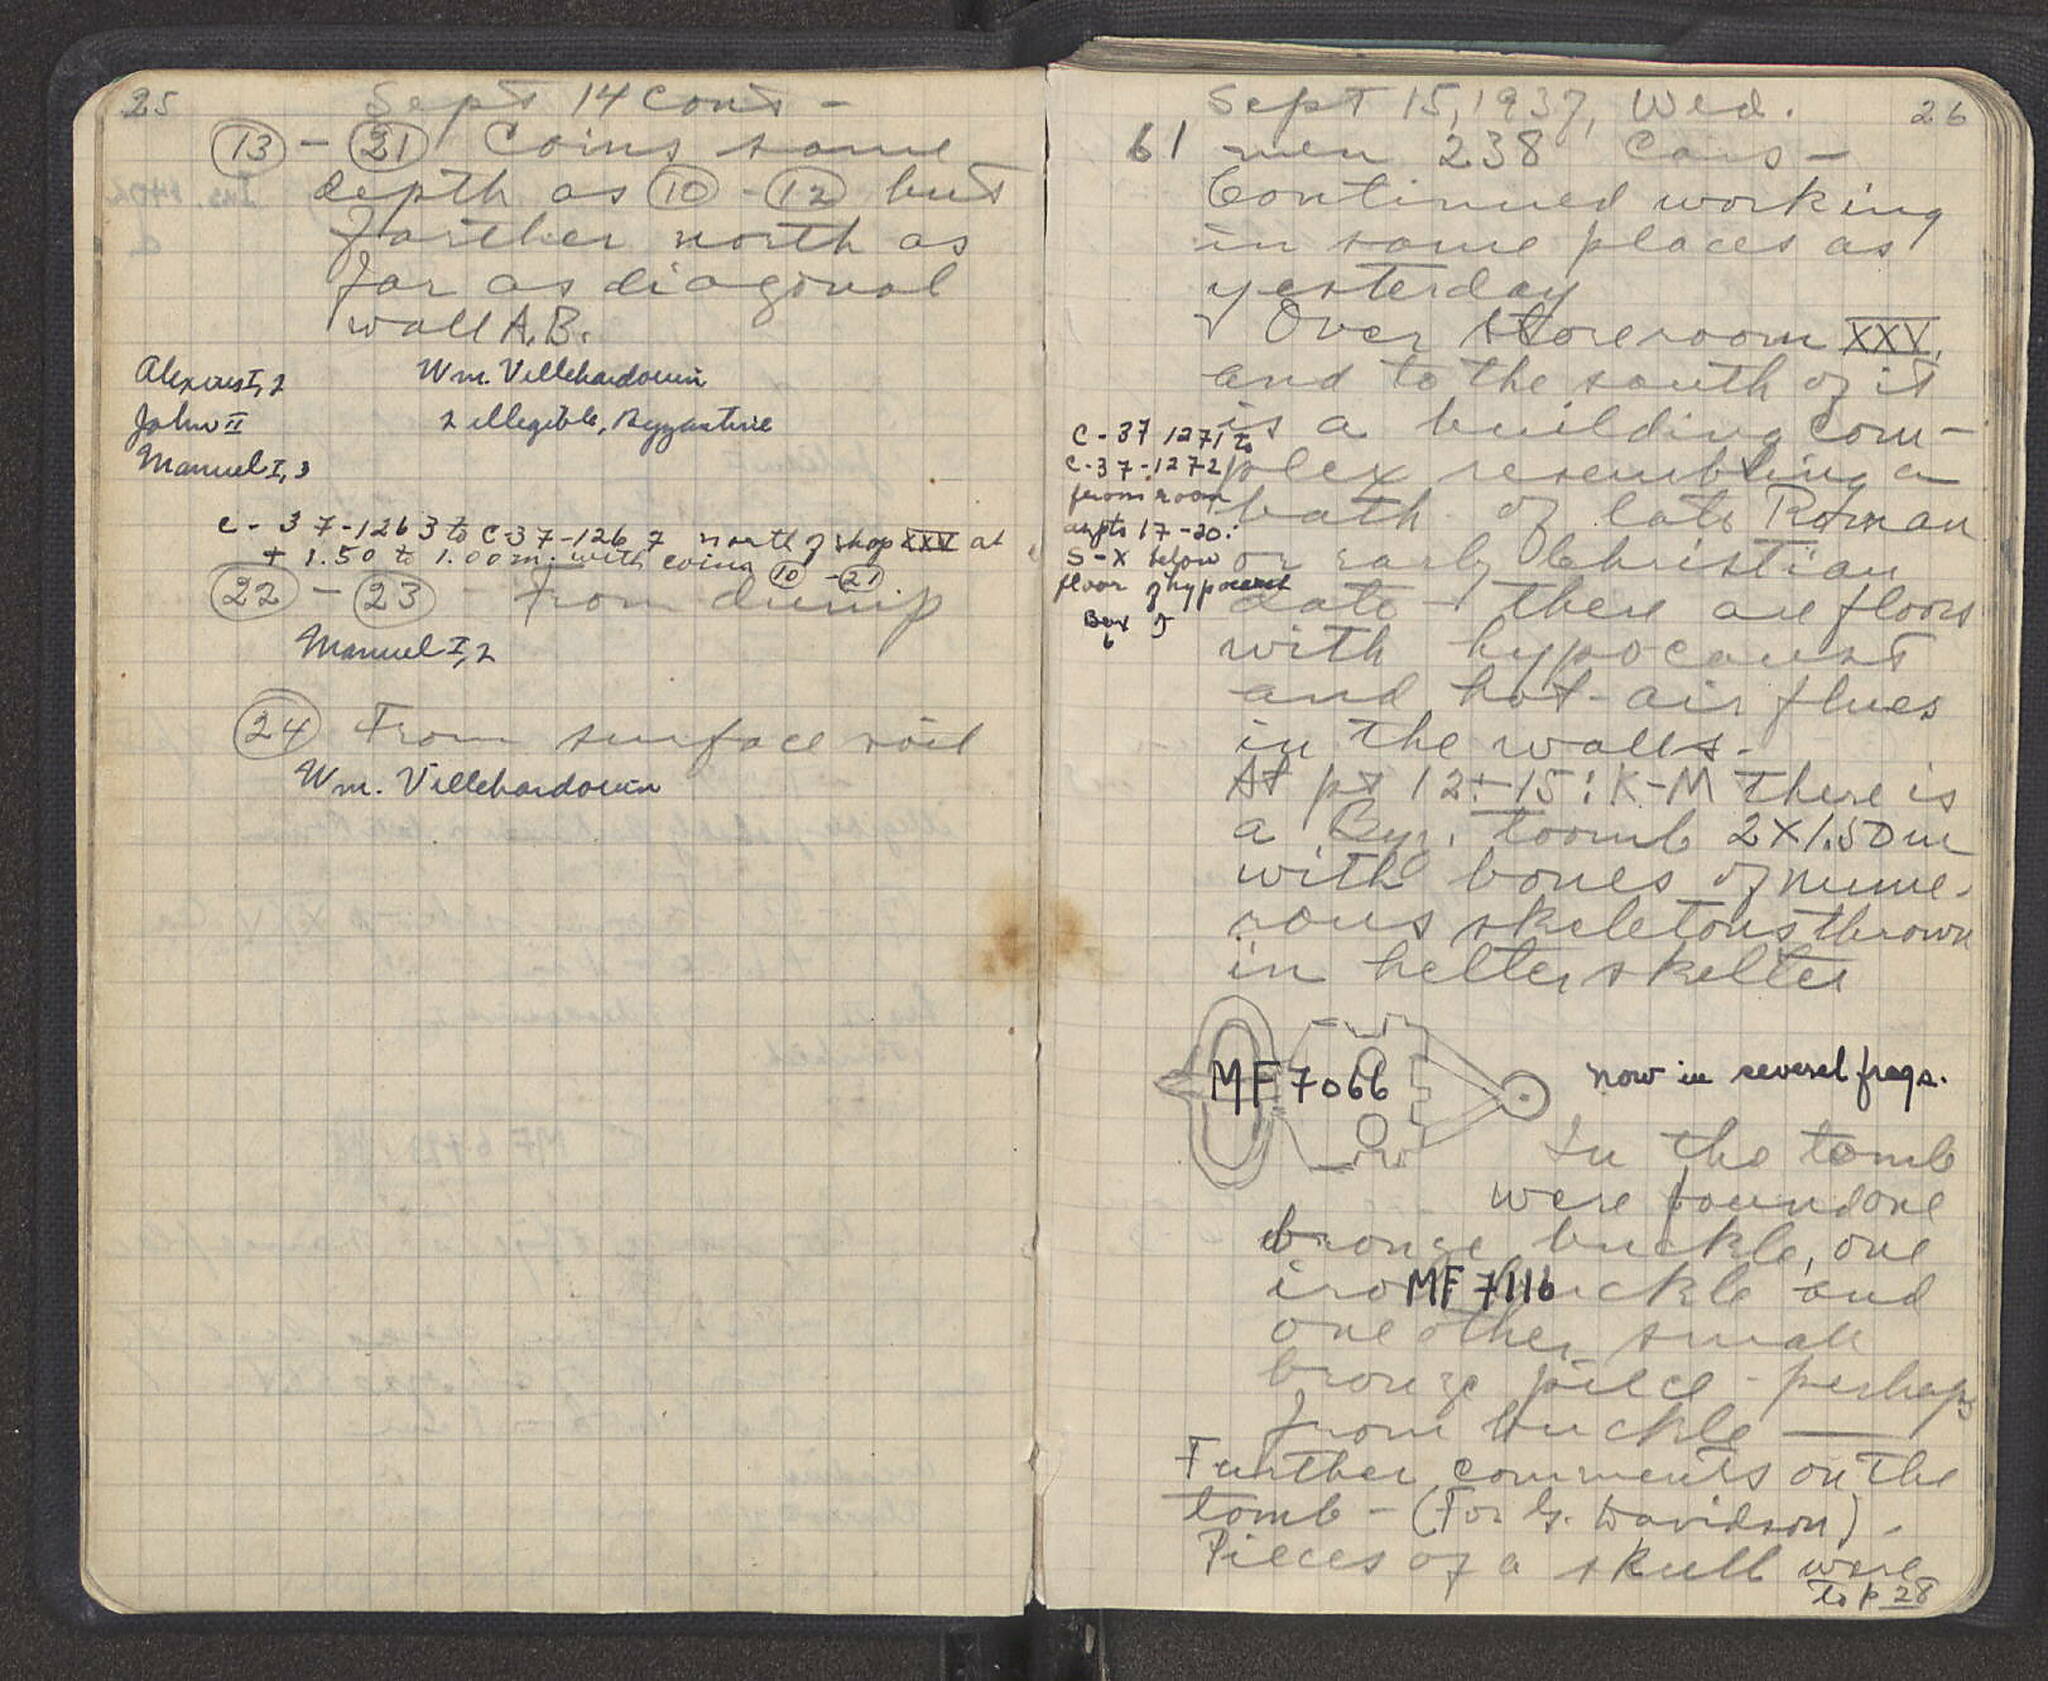 25
Sept 14 Cont -
(13) - (21) Coins same
depth as (10) - (12) but
farther north as
far as diagonal
wall A.B.
Alexius I, 2
Wm. Villehardouin
John II
2 illegible, Byzantine
Manuel I, 3
C-37-1263 to C-37-1267 north of shop XXV at
+ 1.50 to 1.00 m. with coins (10) - (21)
(22) - (23) - From dump
Manuel I, 2
(24) From surface soil
Wm. Villehardouin
Sept 15, 1937, Wed.
26
61 men 238 Cars -
Continued working
in same places as
yesterday
Over Storeroom XXV,
and to the south of it
is a building com-
plex resembling a
bath of late Roman
or early Christian
date - there are floors
with hypocaust
and hot-air flues
in the walls -
C-37 1271 to
C-37-1272
from room
at pts 17-20:
S-X below
floor of hypocaust
Box
6
At pt 12±-15: K-M there is
a Byz. toomb 2X1.50m
with bones of nume-
rous skeletons thrown
in helter skelter
MF 7066
now in several frags.
In the tomb
were found one
bronze buckle, one
iron buckle and
MF 7116
one other small
bronze piece - perhaps
from buckle —
Further comments on the
tomb - (For G. Davidson) -
Pieces of a skull were
to p 28